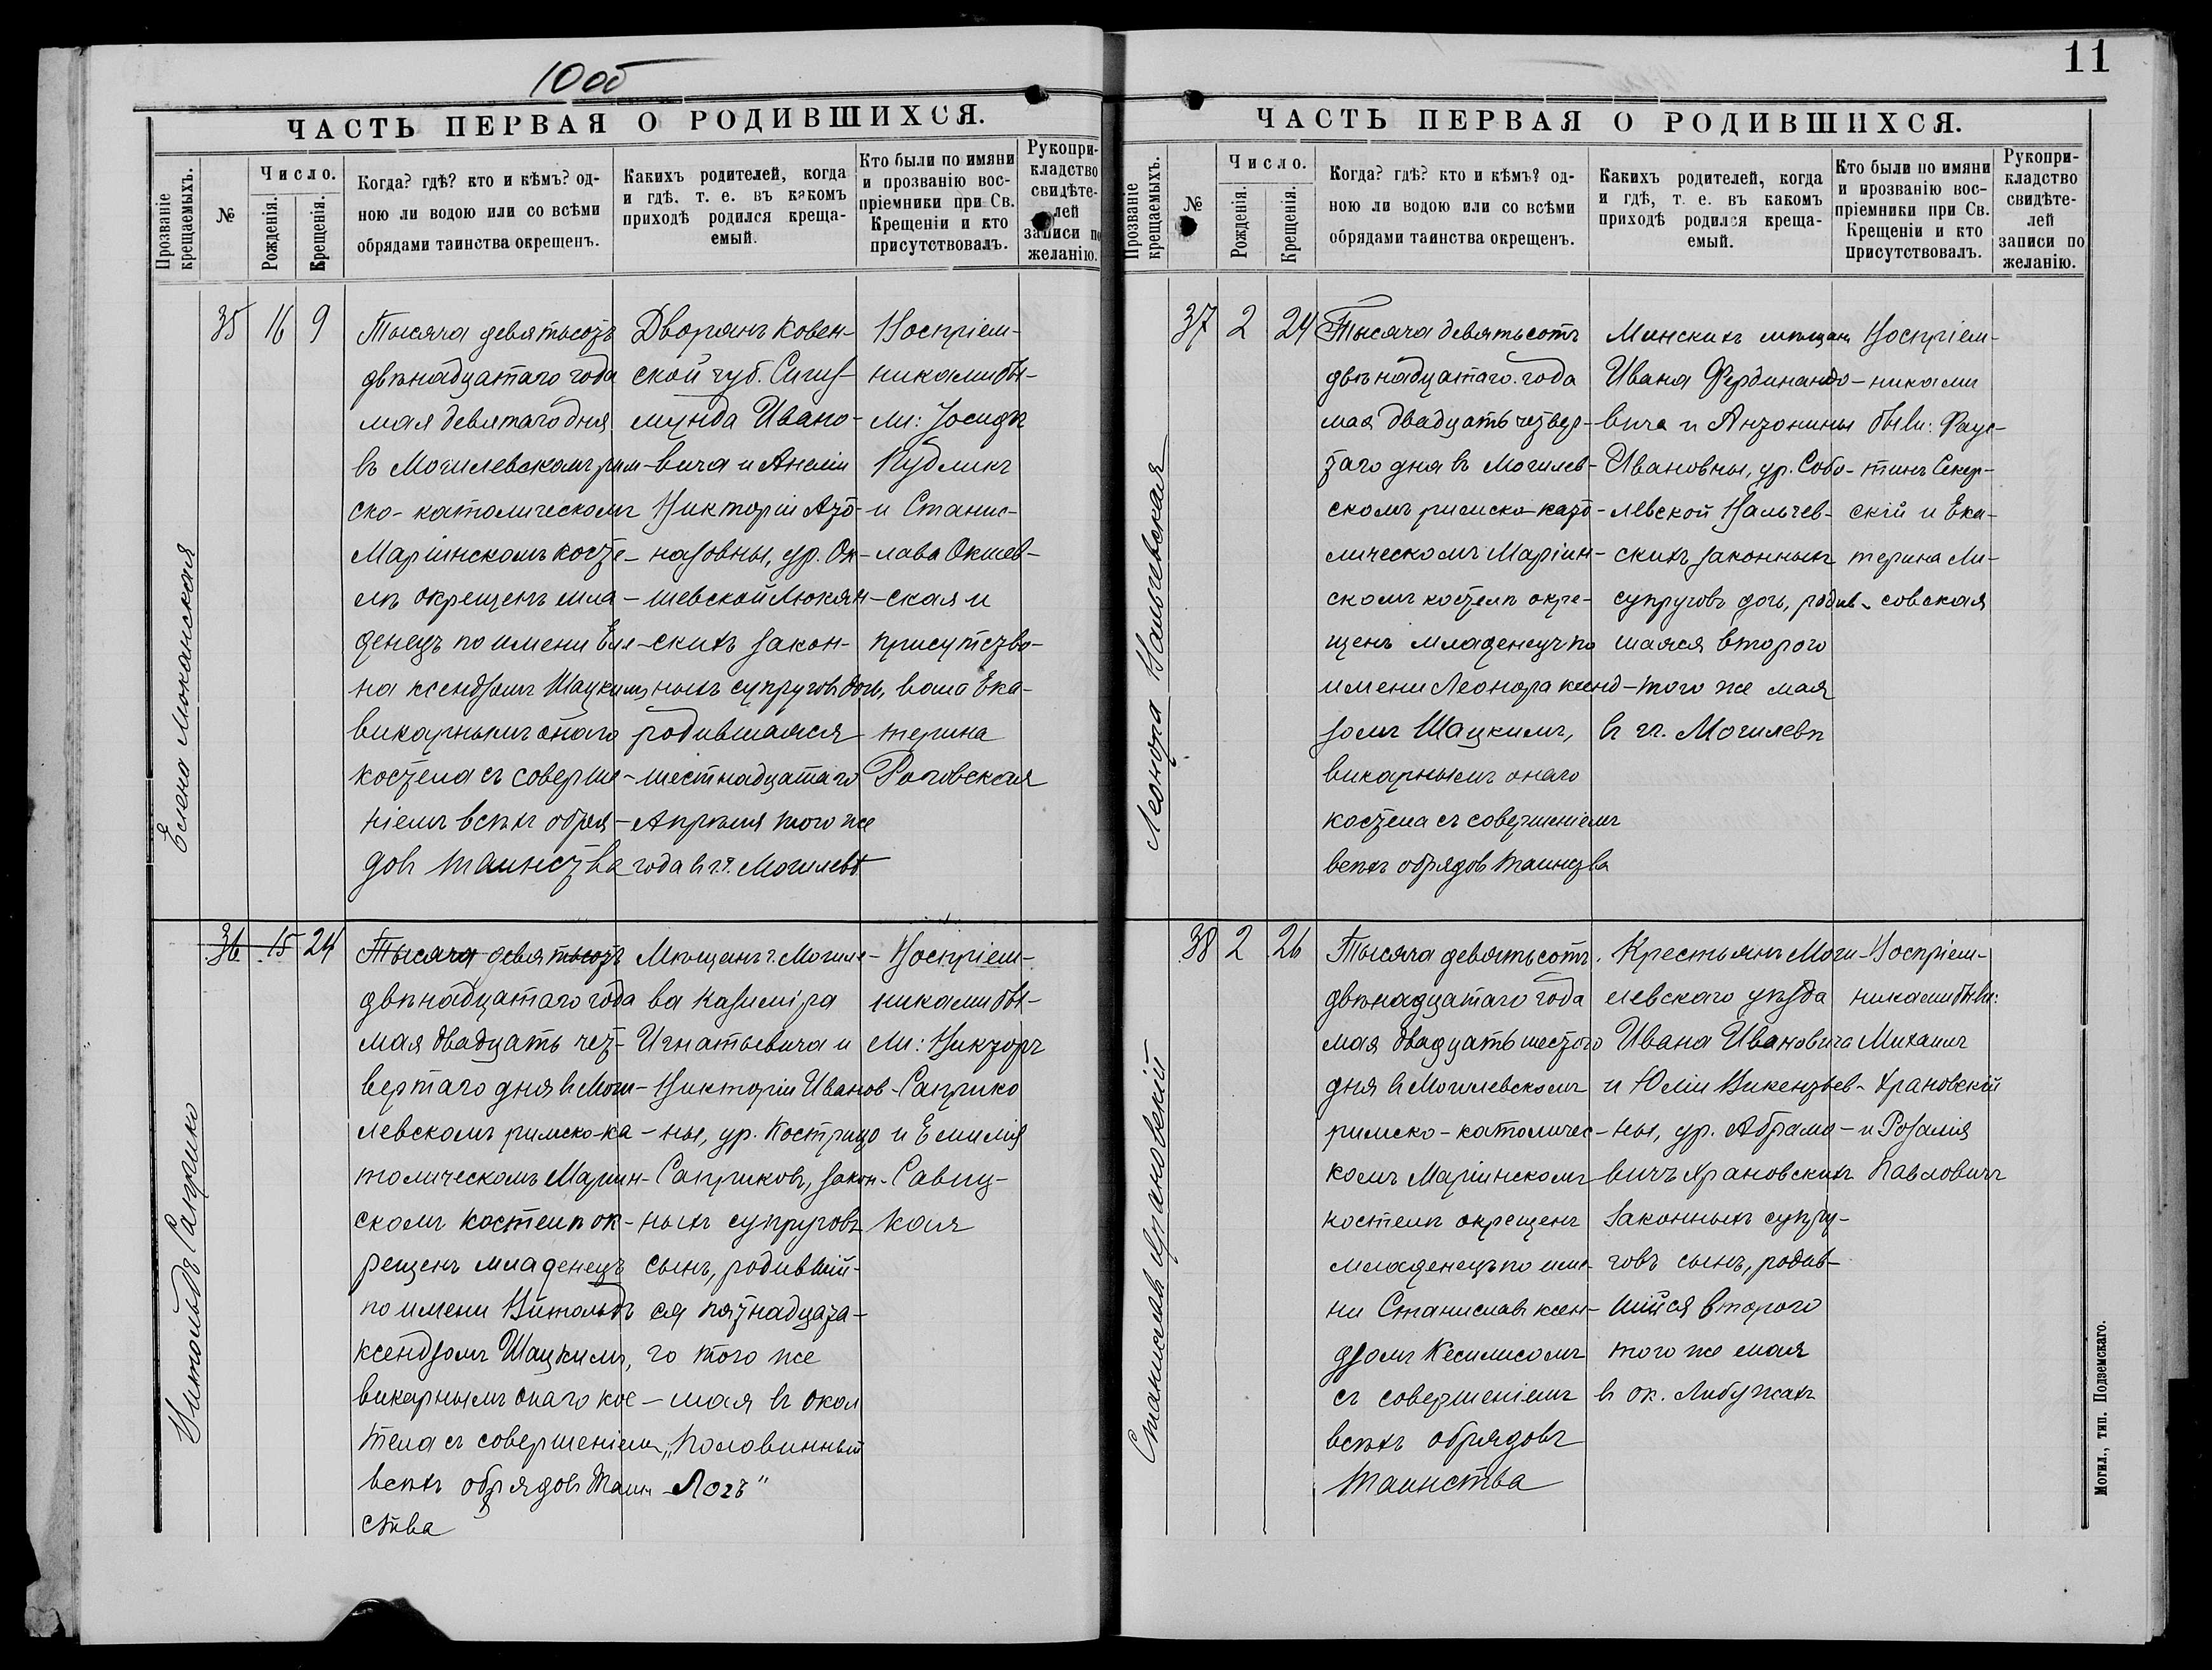 10об
ЧАСТЬ ПЕРВАЯ О РОДИВШИХСЯ.
Прозваніе крещаемыхъ.
№
Число.
Рожденія.
Крещенія.
Когда? гдѣ? кто и кѣмъ? од-
ною ли водою или со всѣми
обрядами таинства окрещенъ.
Какихъ родителей, когда
и гдѣ, т. е. въ какомъ
приходѣ родился креща-
емый.
Кто были по имяни
и прозванію вос-
пріемники при Св.
Крещеніи и кто
присутствовалъ.
Рукопри-
кладство
свидѣте-
лей
записи по
желанію.
Елена Люканская
35
16
9
Тысяча девятьсотъ
двѣнадцатаго года
мая девятаго дня
въ Могилевскомъ рим-
ско-католическомъ
Маріинскомъ косте-
лѣ окрещенъ мла-
денецъ по имени Еле-
на ксендзомъ Шацкимъ
викарнымъ онаго
костела съ соверше-
ніемъ всѣхъ обря-
довъ таинства
Дворянъ Ковен-
ской губ. Сигиз-
мунда Ивано-
вича и Анеліи
Викторіи Аѳо-
назовны, ур. Ок-
шевской Люкан-
скихъ закон-
ныхъ супруговъ дочь,
родившаяся
шестнадцатаго
Апрѣля того же
года въ г. Могилевѣ
Воспріем-
никами бы-
ли: Іосифъ
Кудликъ
и Станис-
лава Окшев-
ская и
присутство-
вала Ека-
терина
Роговская
Витольдъ Саприко
36
15
24
Тысяча девятьсотъ
двѣнадцатаго года
мая двадцать чет-
вертаго дня въ Моги-
левскомъ римско-ка-
толическомъ Маріин-
скомъ костелѣ ок-
рещенъ младенецъ
по имени Витольдъ
ксендзомъ Шацкимъ,
викарнымъ онаго кос-
тела съ совершеніемъ
всѣхъ обрядовъ Таин-
ства
Мѣщанъ г. Могиле-
ва Казиміра
Игнатьевича и
Викторіи Иванов-
ны, ур. Кострицо
Саприковъ, закон-
ныхъ супруговъ
сынъ, родивший-
ся пятнадцата-
го того же
мая въ окол
„Половинный
Логъ"
Воспріем-
никами бы-
ли: Викторъ
Саприко
и Емилія
Савиц-
кая
11
ЧАСТЬ ПЕРВАЯ О РОДИВШИХСЯ.
Прозваніе крещаемыхъ.
№
Число.
Рожденія.
Крещенія.
Когда? гдѣ? кто и кѣмъ? од-
ною ли водою или со всѣми
обрядами таинства окрещенъ.
Какихъ родителей, когда
и гдѣ, т. е. въ какомъ
приходѣ родился креща-
емый.
Кто были по имяни
и прозванію вос-
пріемники при Св.
Крещеніи и кто
присутствовалъ.
Рукопри-
кладство
свидѣте-
лей
записи по
желанію.
Леонора Вальчевская
37
2
24
Тысяча девятьсотъ
двѣнадцатаго года
мая двадцать четвер-
таго дня въ Могилев-
скомъ римско-като-
лическомъ Маріин-
скомъ костелѣ окре-
щенъ младенецъ по
имени Леонора ксенд-
зомъ Шацкимъ,
викарнымъ онаго
костела съ совершеніемъ
всѣхъ обрядовъ таинства
Минскихъ мѣщанъ
Ивана Фердинандо-
вича и Антонины
Ивановны, ур. Собо-
левской Вальчев-
скихъ законныхъ
супруговъ дочь, родив-
шаяся второго
того же мая
въ гг. Могилевѣ
Воспріем-
никами
были: Фаус-
тинъ Секер-
скій и Ека-
терина Ли-
совская
Станиславъ Храновскій
38
2
26
Тысяча девятьсотъ
двѣнадцатаго года
мая двадцать шестого
дня въ Могилевскомъ
римско-католичес-
комъ Маріинскомъ
костелѣ окрещенъ
младенецъ по име-
ни Станиславъ ксен-
дзомъ Кесилисомъ
съ совершеніемъ
всѣхъ обрядовъ
таинства
Крестьянъ Моги-
левскаго уѣзда
Ивана Ивановича
и Юліи Викентьев-
ны, ур. Абрамо-
вичъ Храновскихъ
законныхъ супру-
говъ сынъ, родив-
шійся второго
того же мая
въ ок. Любужахъ
Воспріем-
никами были:
Михаилъ
Храновскій
и Розалія
Павловичъ
Могил., тип. Подземскаго.